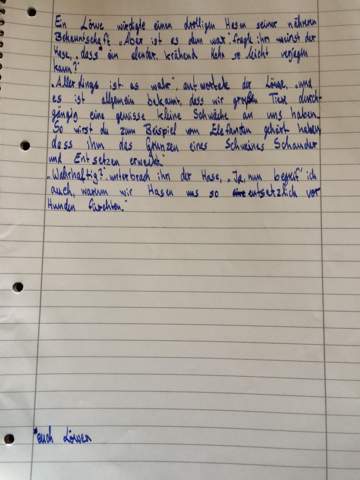 Ein Löwe würdigte einen drolligen Hasen seiner näheren
Bekanntschaft. „Aber ist es denn wahr", fragte ihn einst der
Hase, „dass* ein elender, krähend Hahn so leicht verjagen
kann?"
„Allerdings ist es wahr", antwortete der Löwe, „und
es ist allgemein bekannt, dass wir großen Tiere durch-
gängig eine gewisse kleine Schwäche an uns haben.
So wirst du zum Beispiel vom Elefanten gehört haben,
dass ihm das Grunzen eines Schweines Schauder
und Entsetzen erweckt."
„Wahrhaftig?" unterbrach ihn der Hase, „Ja, nun begreif' ich
auch, warum wir Hasen uns so entsetzlich vor
Hunden fürchten."
*euch Löwen